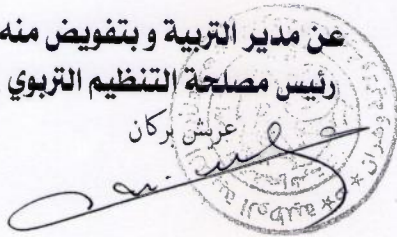 عن مدير التربية و بتفويض منه
رئيس مصلحة التنظيم التربوي
عريش بركان